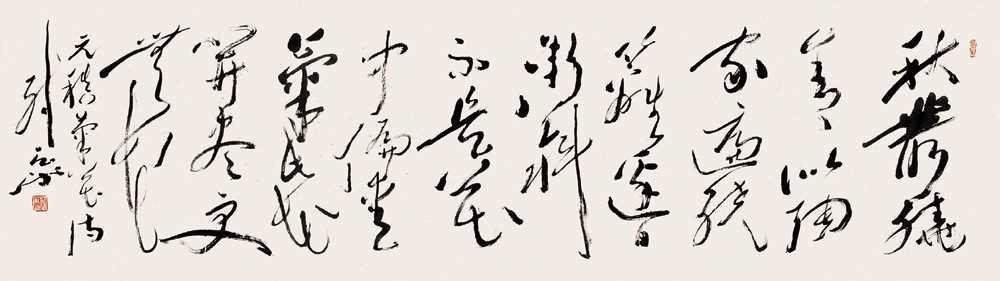 秋叢繞
舍似陶
家遍繞
籬邊日
漸斜
不是花
中偏愛
菊此花
開盡更
無花
元稹菊花詩